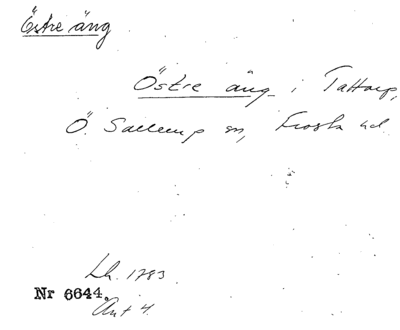 Östre äng
Östre äng i Tattarp,
Ö. Sallerup sn, Frosta hd.
Lh. 1783.
Nr 6644.
Akt 4.